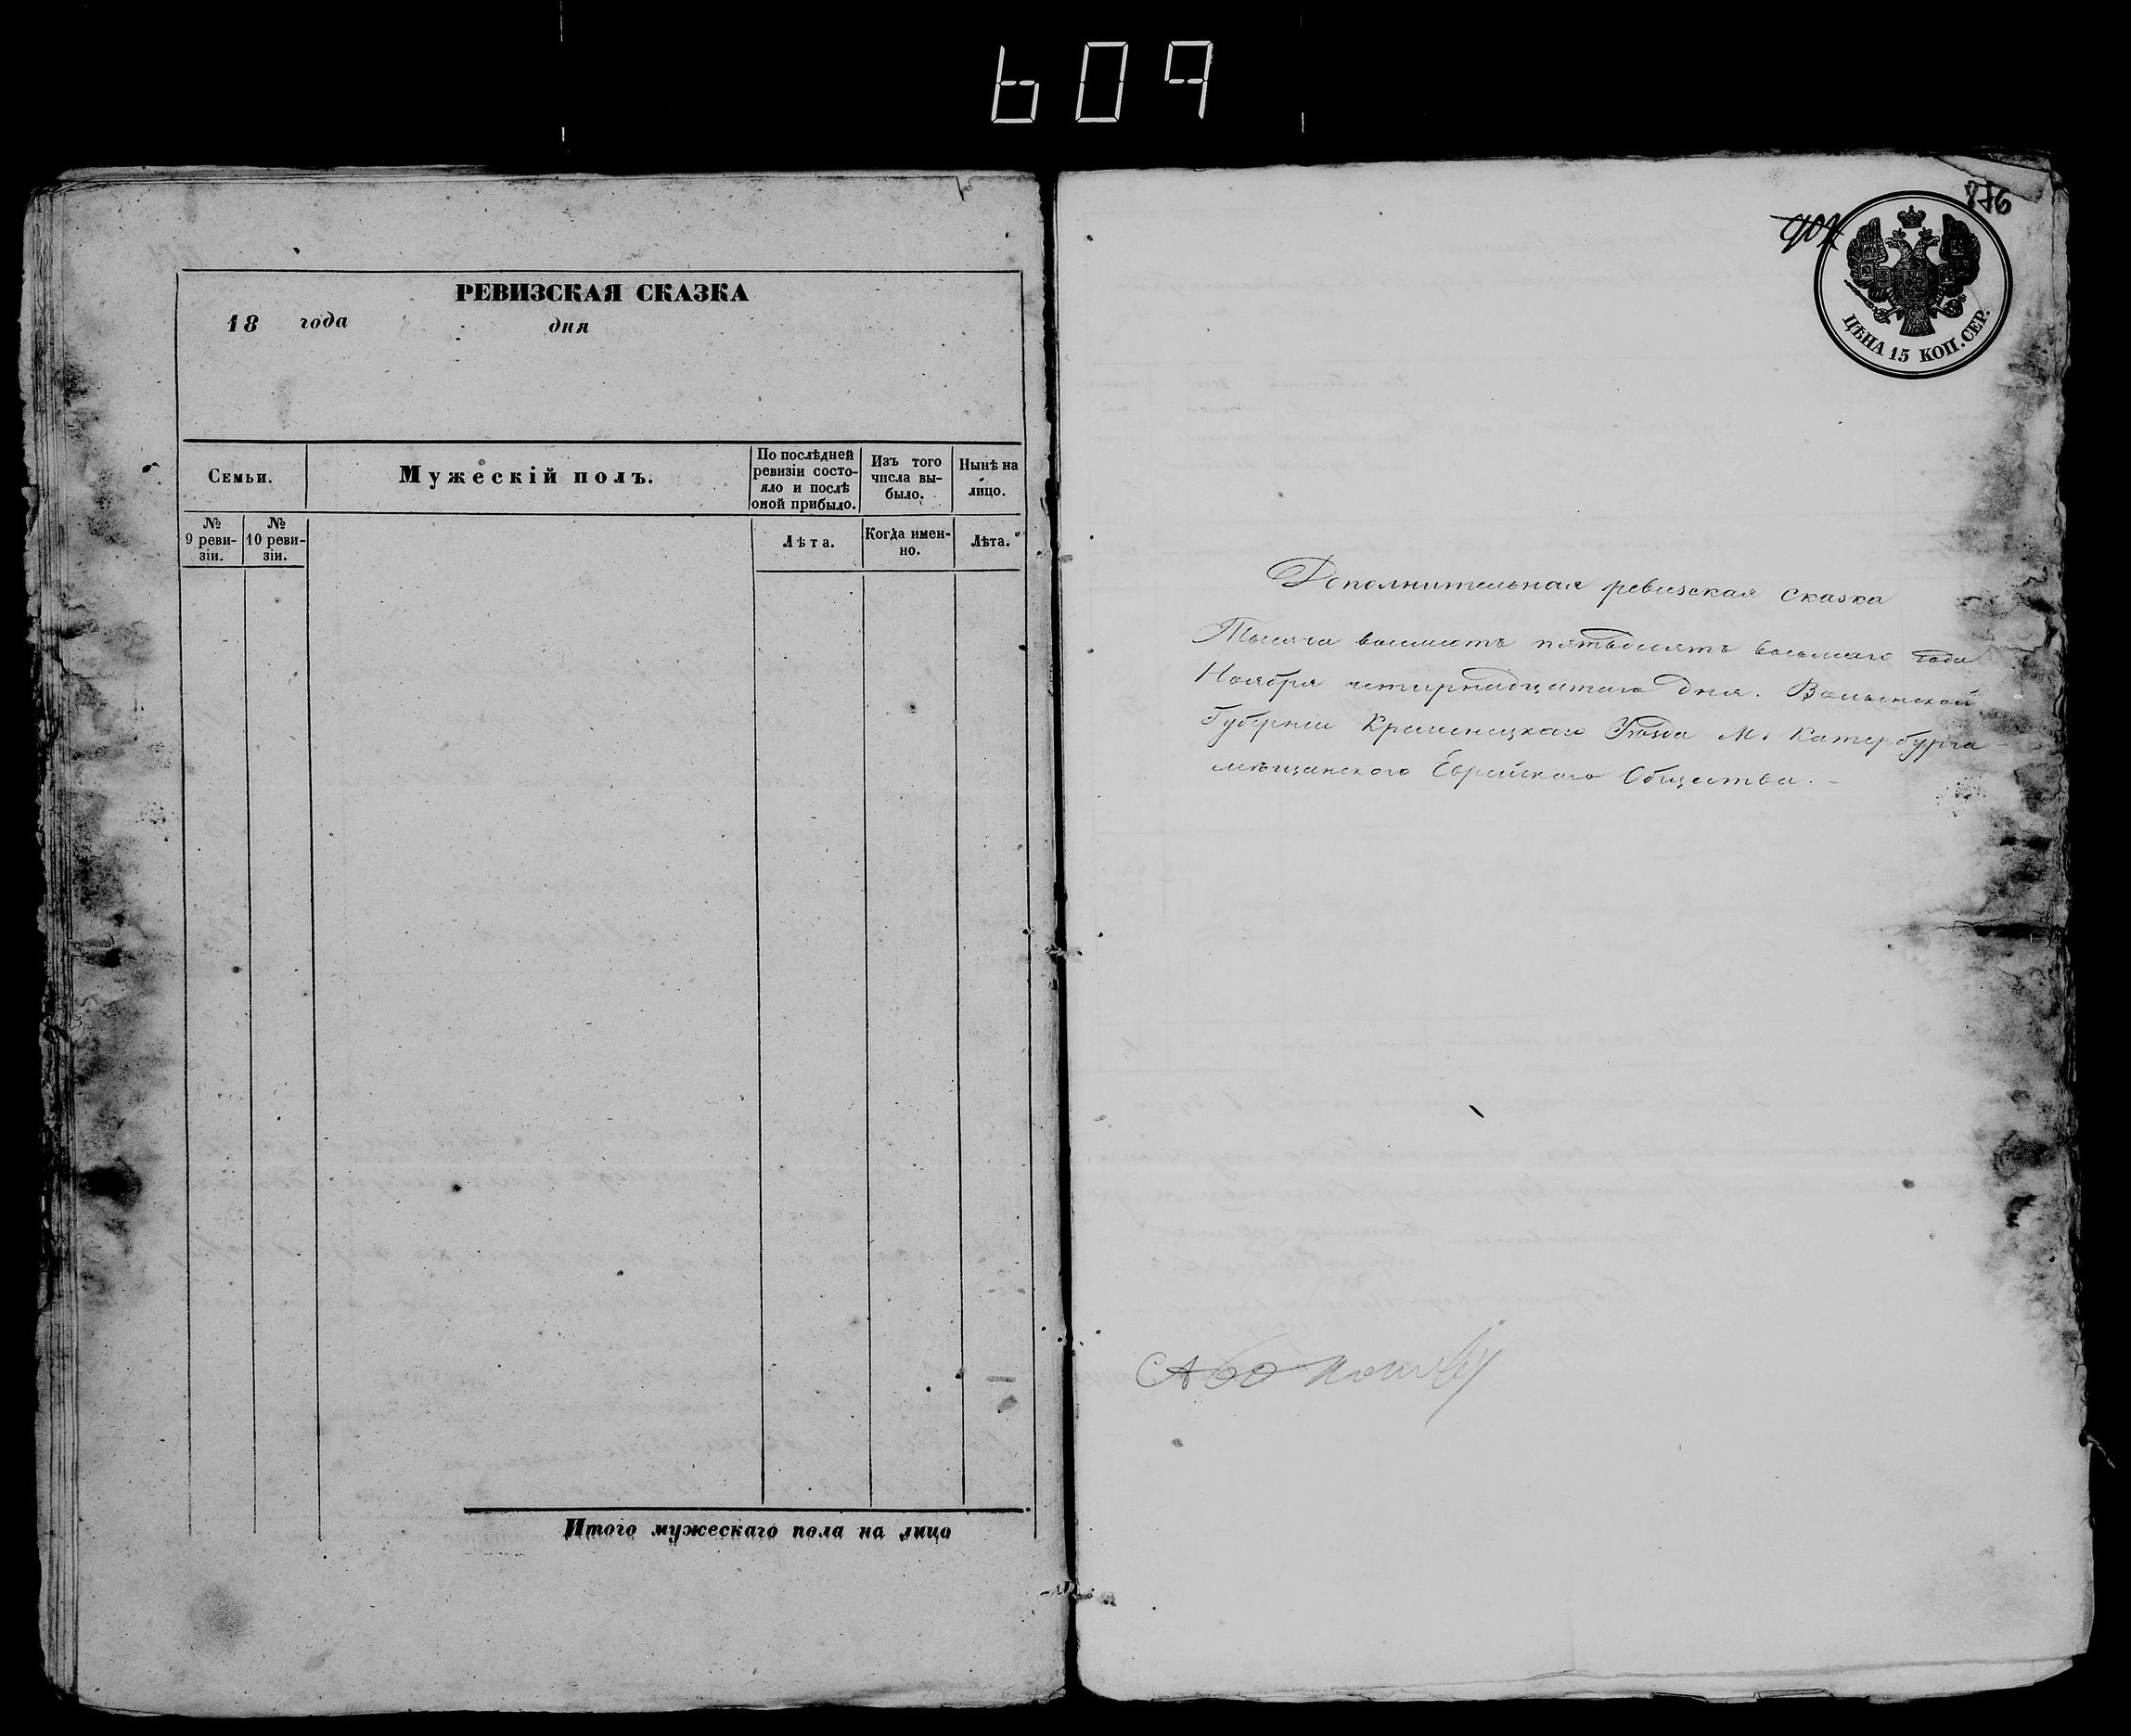 609
РЕВИЗСКАЯ СКАЗКА
18 года дня
Семьи.
Мужескій полъ.
По послѣдней ревизіи состо-
яло и послѣ
оной прибыло.
Изъ того
числа вы-
было.
Нынѣ на
лицо.
№
9 реви-
зіи.
№
10 реви-
зіи.
Лѣта.
Когда имен-
но.
Лѣта.
Итого мужескаго пола на лицо
876
ЦѢНА 15 КОП. СЕР.
Дополнительная ревизская сказка
Тысяча восемьсотъ пятьдесятъ восьмаго года
Ноября четырнадцатаго дня. Волынской
Губерніи Кременецкаго Уѣзда М. Катербурга
мѣщанского Еврейского Общества.